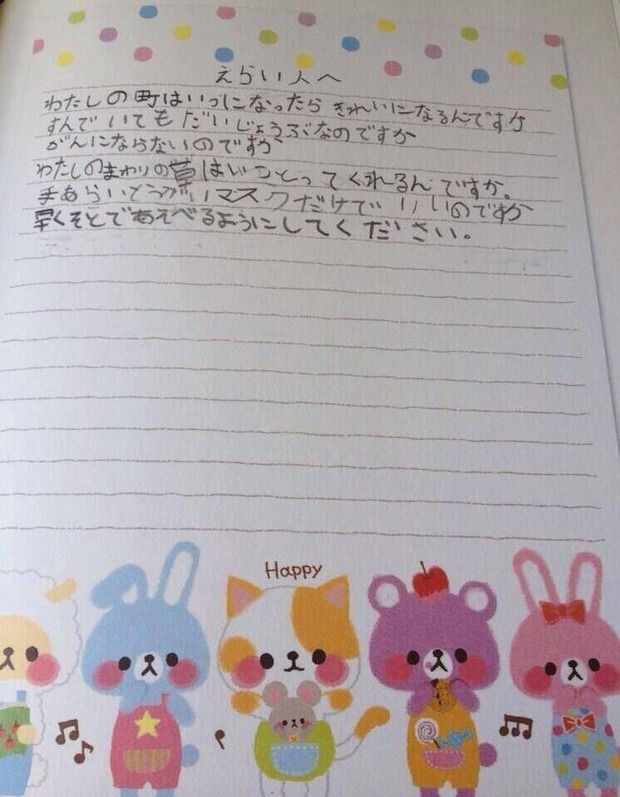 えらい人へ
わたしの町はいつになったらきれいになるんですか
すんでいてもだいじょうぶなのですか
がんにならないのですか
わたしのまわりの草はいつとってくれるんですか。
手あらいとうがいマスクだけでいいのですか
早くそとであそべるようにしてください。
Happy